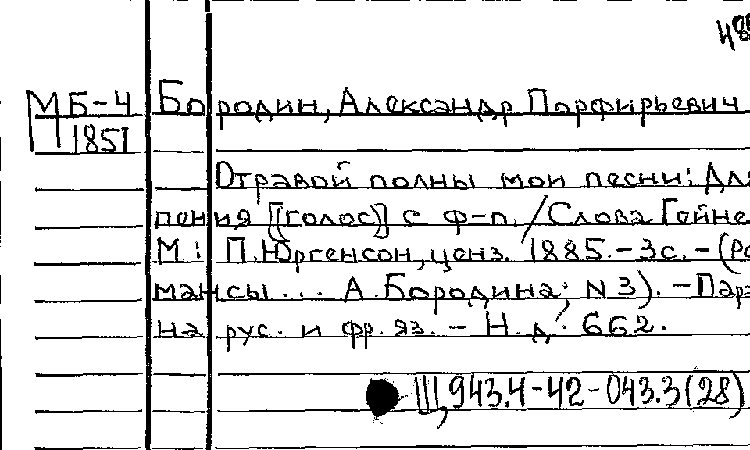 МБ-4 Бородин, Александр Порфирьевич
1851
Отравой полны мои песни: Для
пения [[голос]] с ф-п. / Слова Гейне
М.: П. Юргенсон, ценз. 1885.-3с.-(Ро
мансы... А. Бородина; N3).-Пара
на рус. и фр. яз. - Н.д.: 662.
Щ943.4-42-043.3(28)